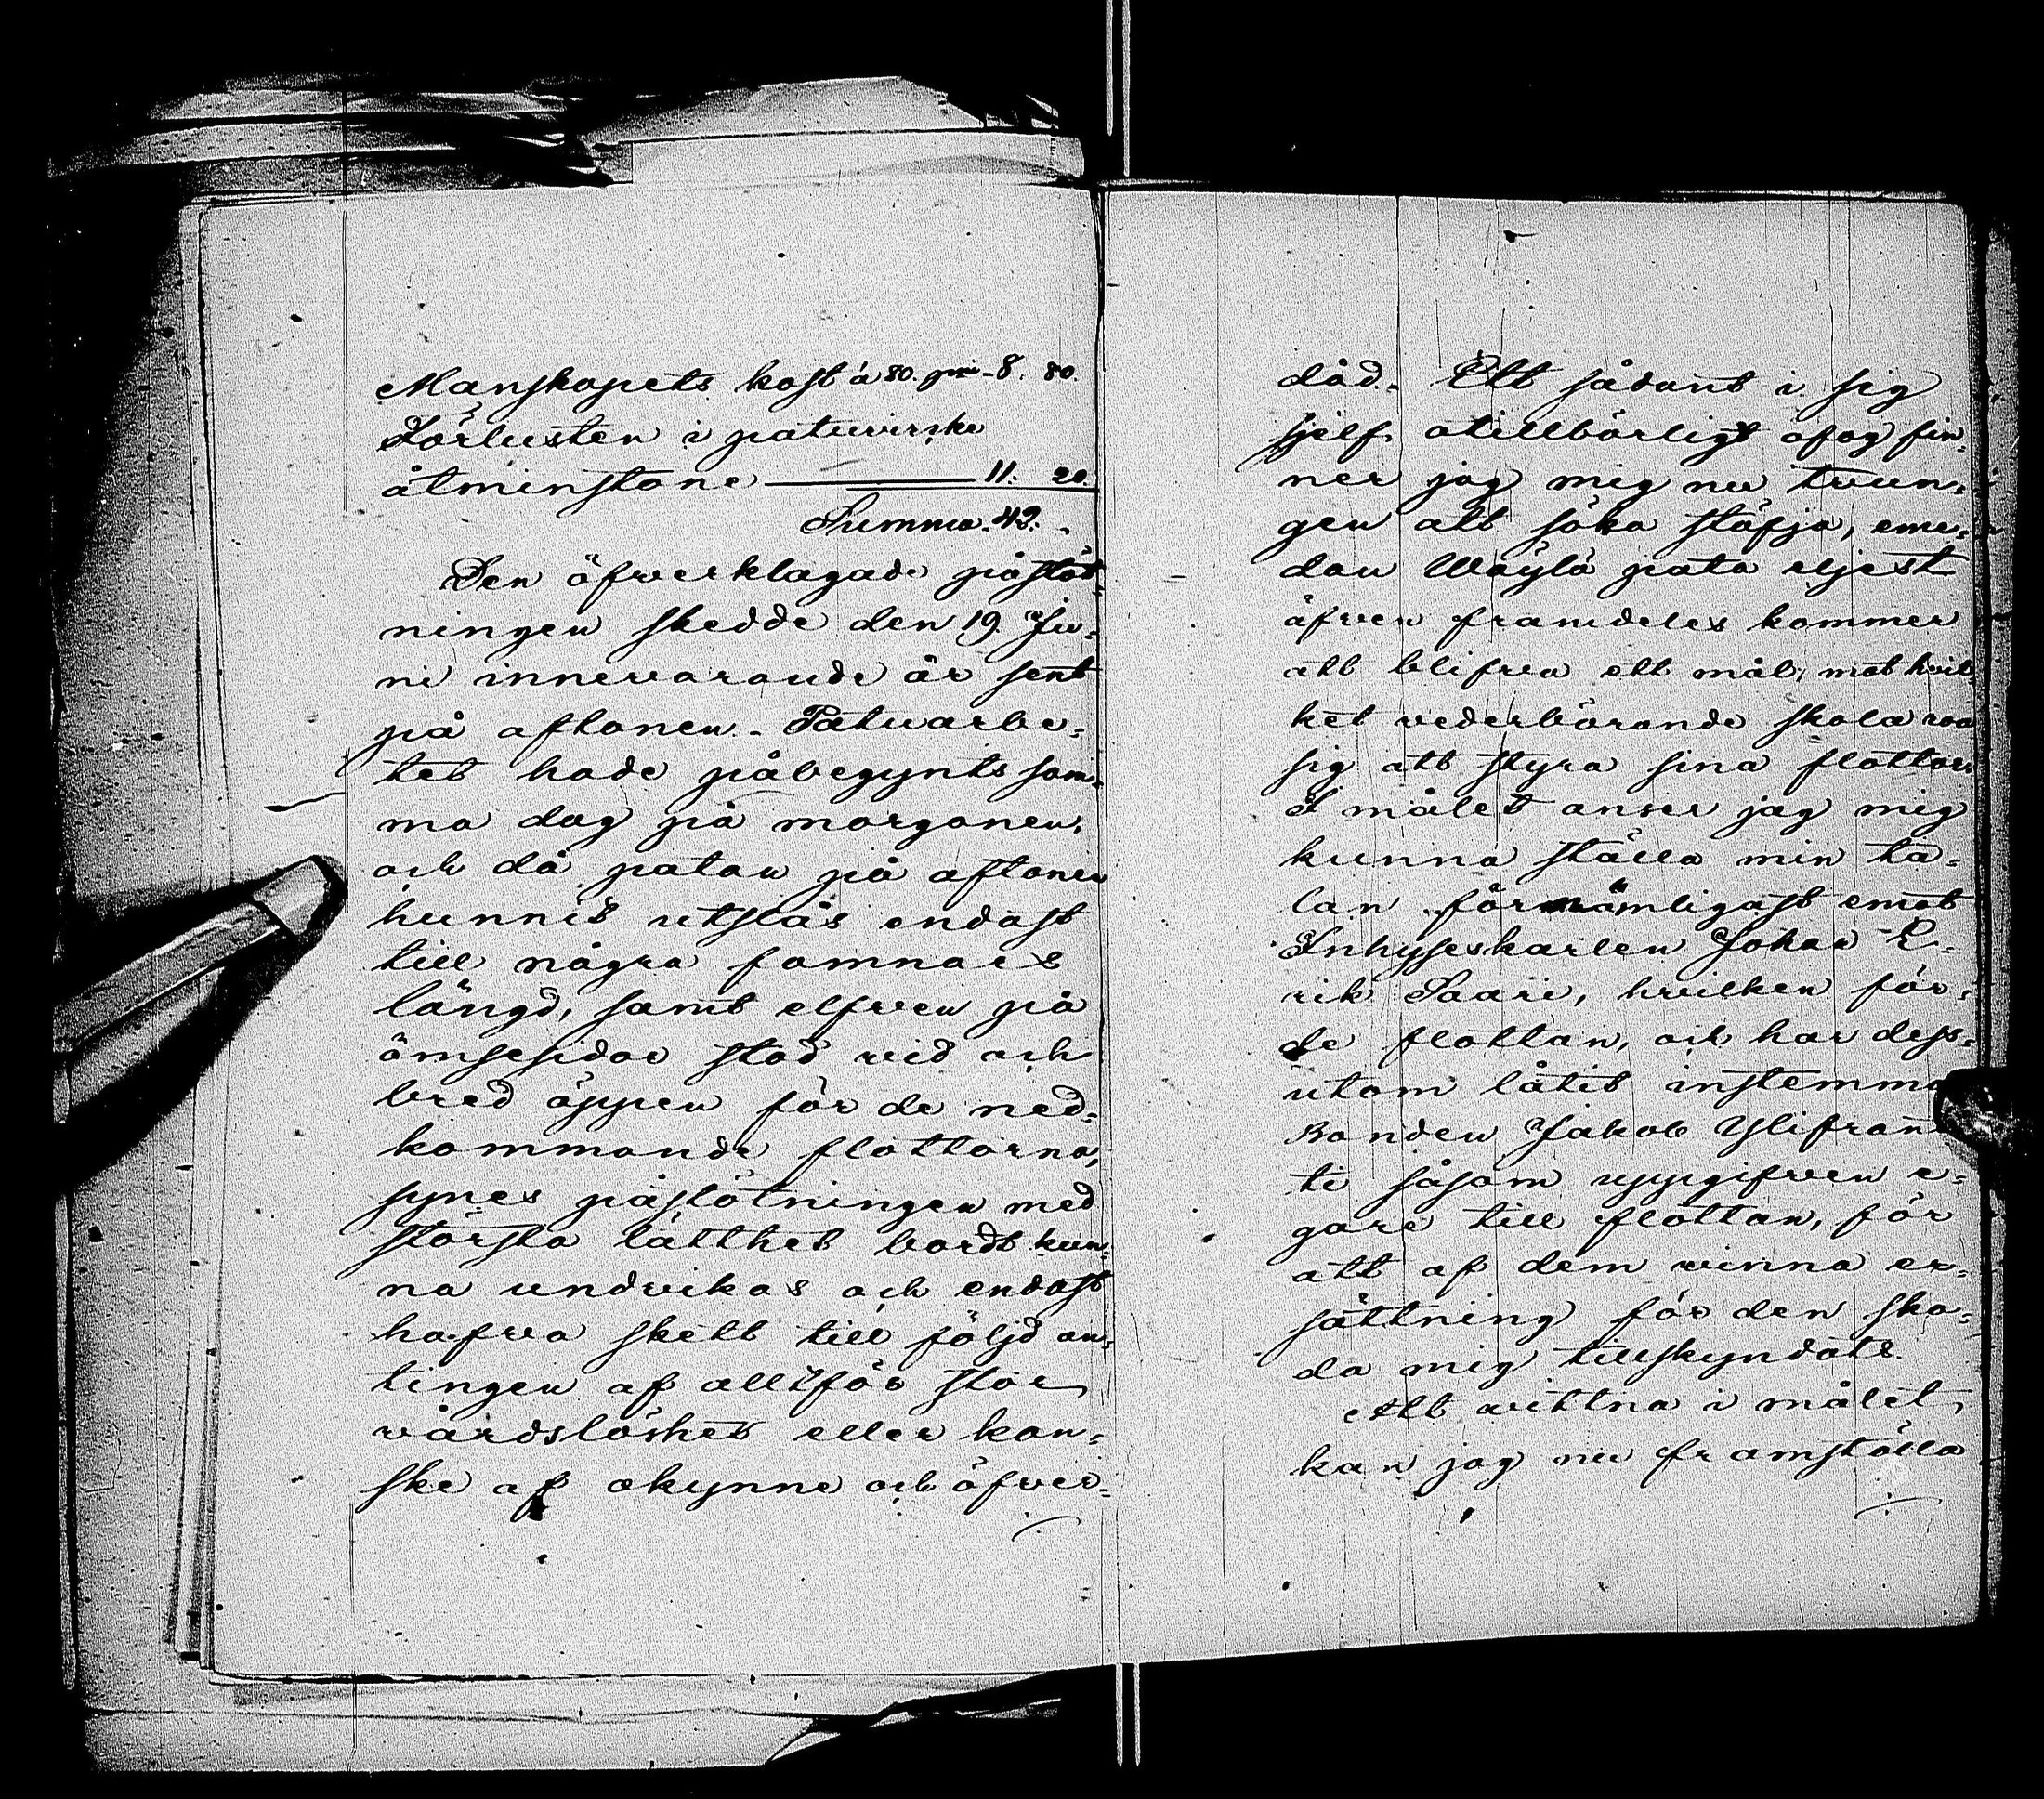 Manskapets kost à 80. pni - 8. 80.
Förlusten i patuvirke
åtminstone 11. 20.
Summa. 49.
Den öfverklagade påstöt-
ningen skedde den 19 Ju-
ni innevarande år sent
på aftonen. Patuarbe-
tet hade påbegynts sam-
ma dag på morgonen,
och då patan på aftonen
hunnit utslås endast
till några famnars
längd, samt elfven på
ömsesidor stod vid och
bred öppen för de ned-
kommande flottorna,
synes påstötningen med
största lätthet bordt kun-
na undvikas och endast
hafva skett till följd an-
tingen af alltför stor
vårdslöshet eller kan-
ske af okynne och öfver-
dåd. Ett sådant i sig
sjelf otillbörligt ofog fin-
ner jag mig nu tvun-
gen att söka stäfja, eme-
dan Wäylä pata eljest
äfven framdeles kommer
att blifva ett mål, mot hvil-
ket vederbörande skola roa
sig att styra sina flottor.
I målet anser jag mig
kunna ställa min ta-
lan förnämligast emot
Inhyseskarlen Johan E-
rik Saari, hvilken för-
de flottan, och har dess-
utom låtit instemma
Bonden Jakob Ylifrant-
ti såsom uppgifven e-
gare till flottan, för
att af dem vinna er-
sättning för den ska-
da mig tillskyndats.
Att vittna i målet,
kan jag nu framställa